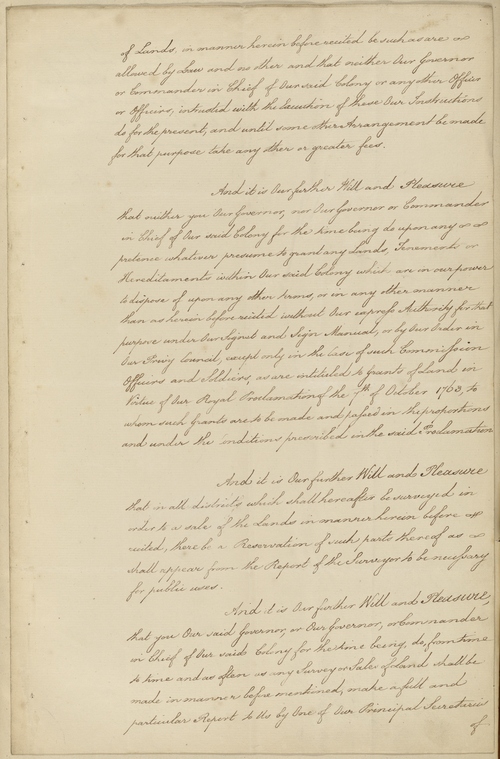 of Lands, in manner herein before recited be such as are
allowed by Law and no other and that neither Our Governor
or Commander in Chief of Our said Colony or any other Officer
or Officers, intrusted with the Execution of these Our Instructions
do for the present, and until some other Arrangement be made
for that purpose take any other or greater fees.
And it is Our further Will and Pleasure
that neither you Our Governor, nor Our Governor or Commander
in Chief of Our said Colony for the time being do upon any
pretence whatever presume to grant any Lands, Tenements or
Hereditaments within Our said Colony which are in our power
to dispose of upon any other terms, or in any other manner
than as herein before recited without Our express Authority for that
purpose under Our Signet and Sign Manual, or by Our Order in
Our Privy Council, except only in the case of such Commission
Officers and Soldiers, as are intituled to grants of Land in
Virtue of Our Royal Proclamation of the 7th of October 1763, to
whom such Grants are to be made and passed in the proportions
and under the Conditions prescribed in the said Proclamation
And it is Our further Will and Pleasure
that in all districts which shall hereafter be surveyed in
order to a sale of the Lands in manner herein before
recited, there be a Reservation of such parts thereof as
shall appear from the Report of the Surveyor to be necessary
for public uses.
And it is Our further Will and Pleasure,
that you Our said Governor, or Our Governor, or Commander
in Chief of Our said Colony for the time being, do, from time
to time and as often as any Survey or Sale of Land shall be
made in manner before mentioned, make a full and
particular Report to Us by One of Our Principal Secretaries
of